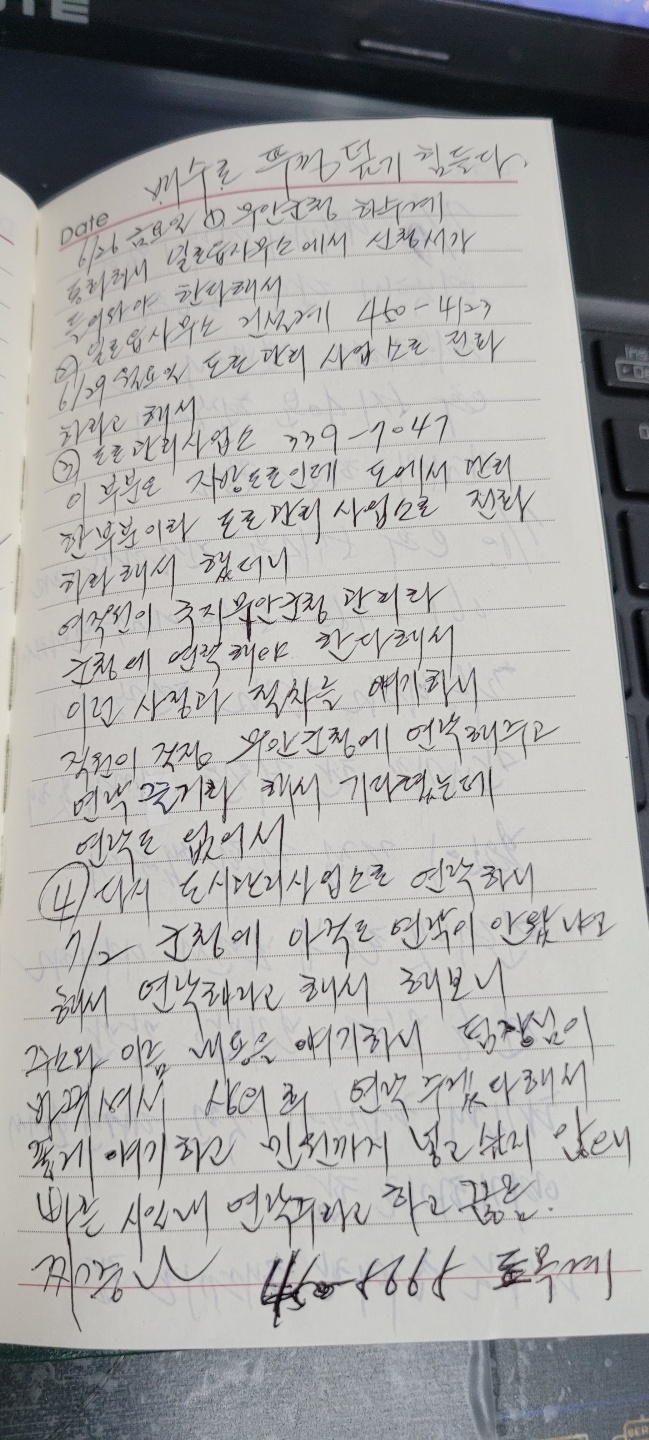 배수로 뚜껑 덮기 힘들다.
Date
6/26 금요일 ① 무안군청 하수계
통화해서 일로읍사무소에서 신청서가
들어와야 한다해서
② 일로읍사무소 건설계 450-4123
6/29 월요일 도로관리사업소로 전화
하라고 해서
③ 도로관리사업소 339-7047
이 부분도 지방도로인데 도에서 관리
한부분이라 도로관리사업소로 전화
하라해서 했더니
여직원이 국지 무안군청 관리라
군청에 연락해야 한다해서
이런 사정과 절차를 얘기하니
직원이 직접 무안군청에 연락해주고
연락 준거라 해서 기다렸는데
연락도 없어서
④ 다시 도시관리사업소로 연락하니
7/2 군청에 아직도 연락이 안왔냐고
해서 연락해라고 해서 해보니
주소와 이름 내용을 얘기하니 팀장님이
바뀌셔서 상의후 연락 주겠다해서
좋게 얘기하고 민원까지 넣고 싶지 않으니
빠른 시일내 연락주라고 하고 끊음.
450-5665 토목계